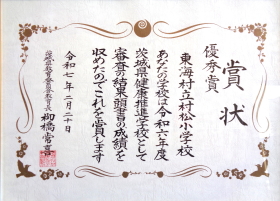 賞状
優秀賞
東海村立村松小学校
あなたの学校は令和六年度
茨城県健康推進学校として
審査の結果頭書の成績を
収めたのでこれを賞します
令和七年二月二十日
茨城県教育委員会教育長 柳橋常喜